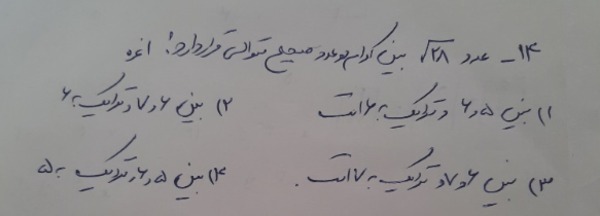 ۱۴- عدد √۲۸ بین کدام دو عدد صحیح متوالی قرار دارد؟ ۱ نمره
۱) بین ۵ و ۶ و نزدیک به ۶ است ۲) بین ۶ و ۷ و نزدیک به ۶
۳) بین ۶ و ۷ و نزدیک به ۷ است. ۴) بین ۵ و ۶ و نزدیک به ۵